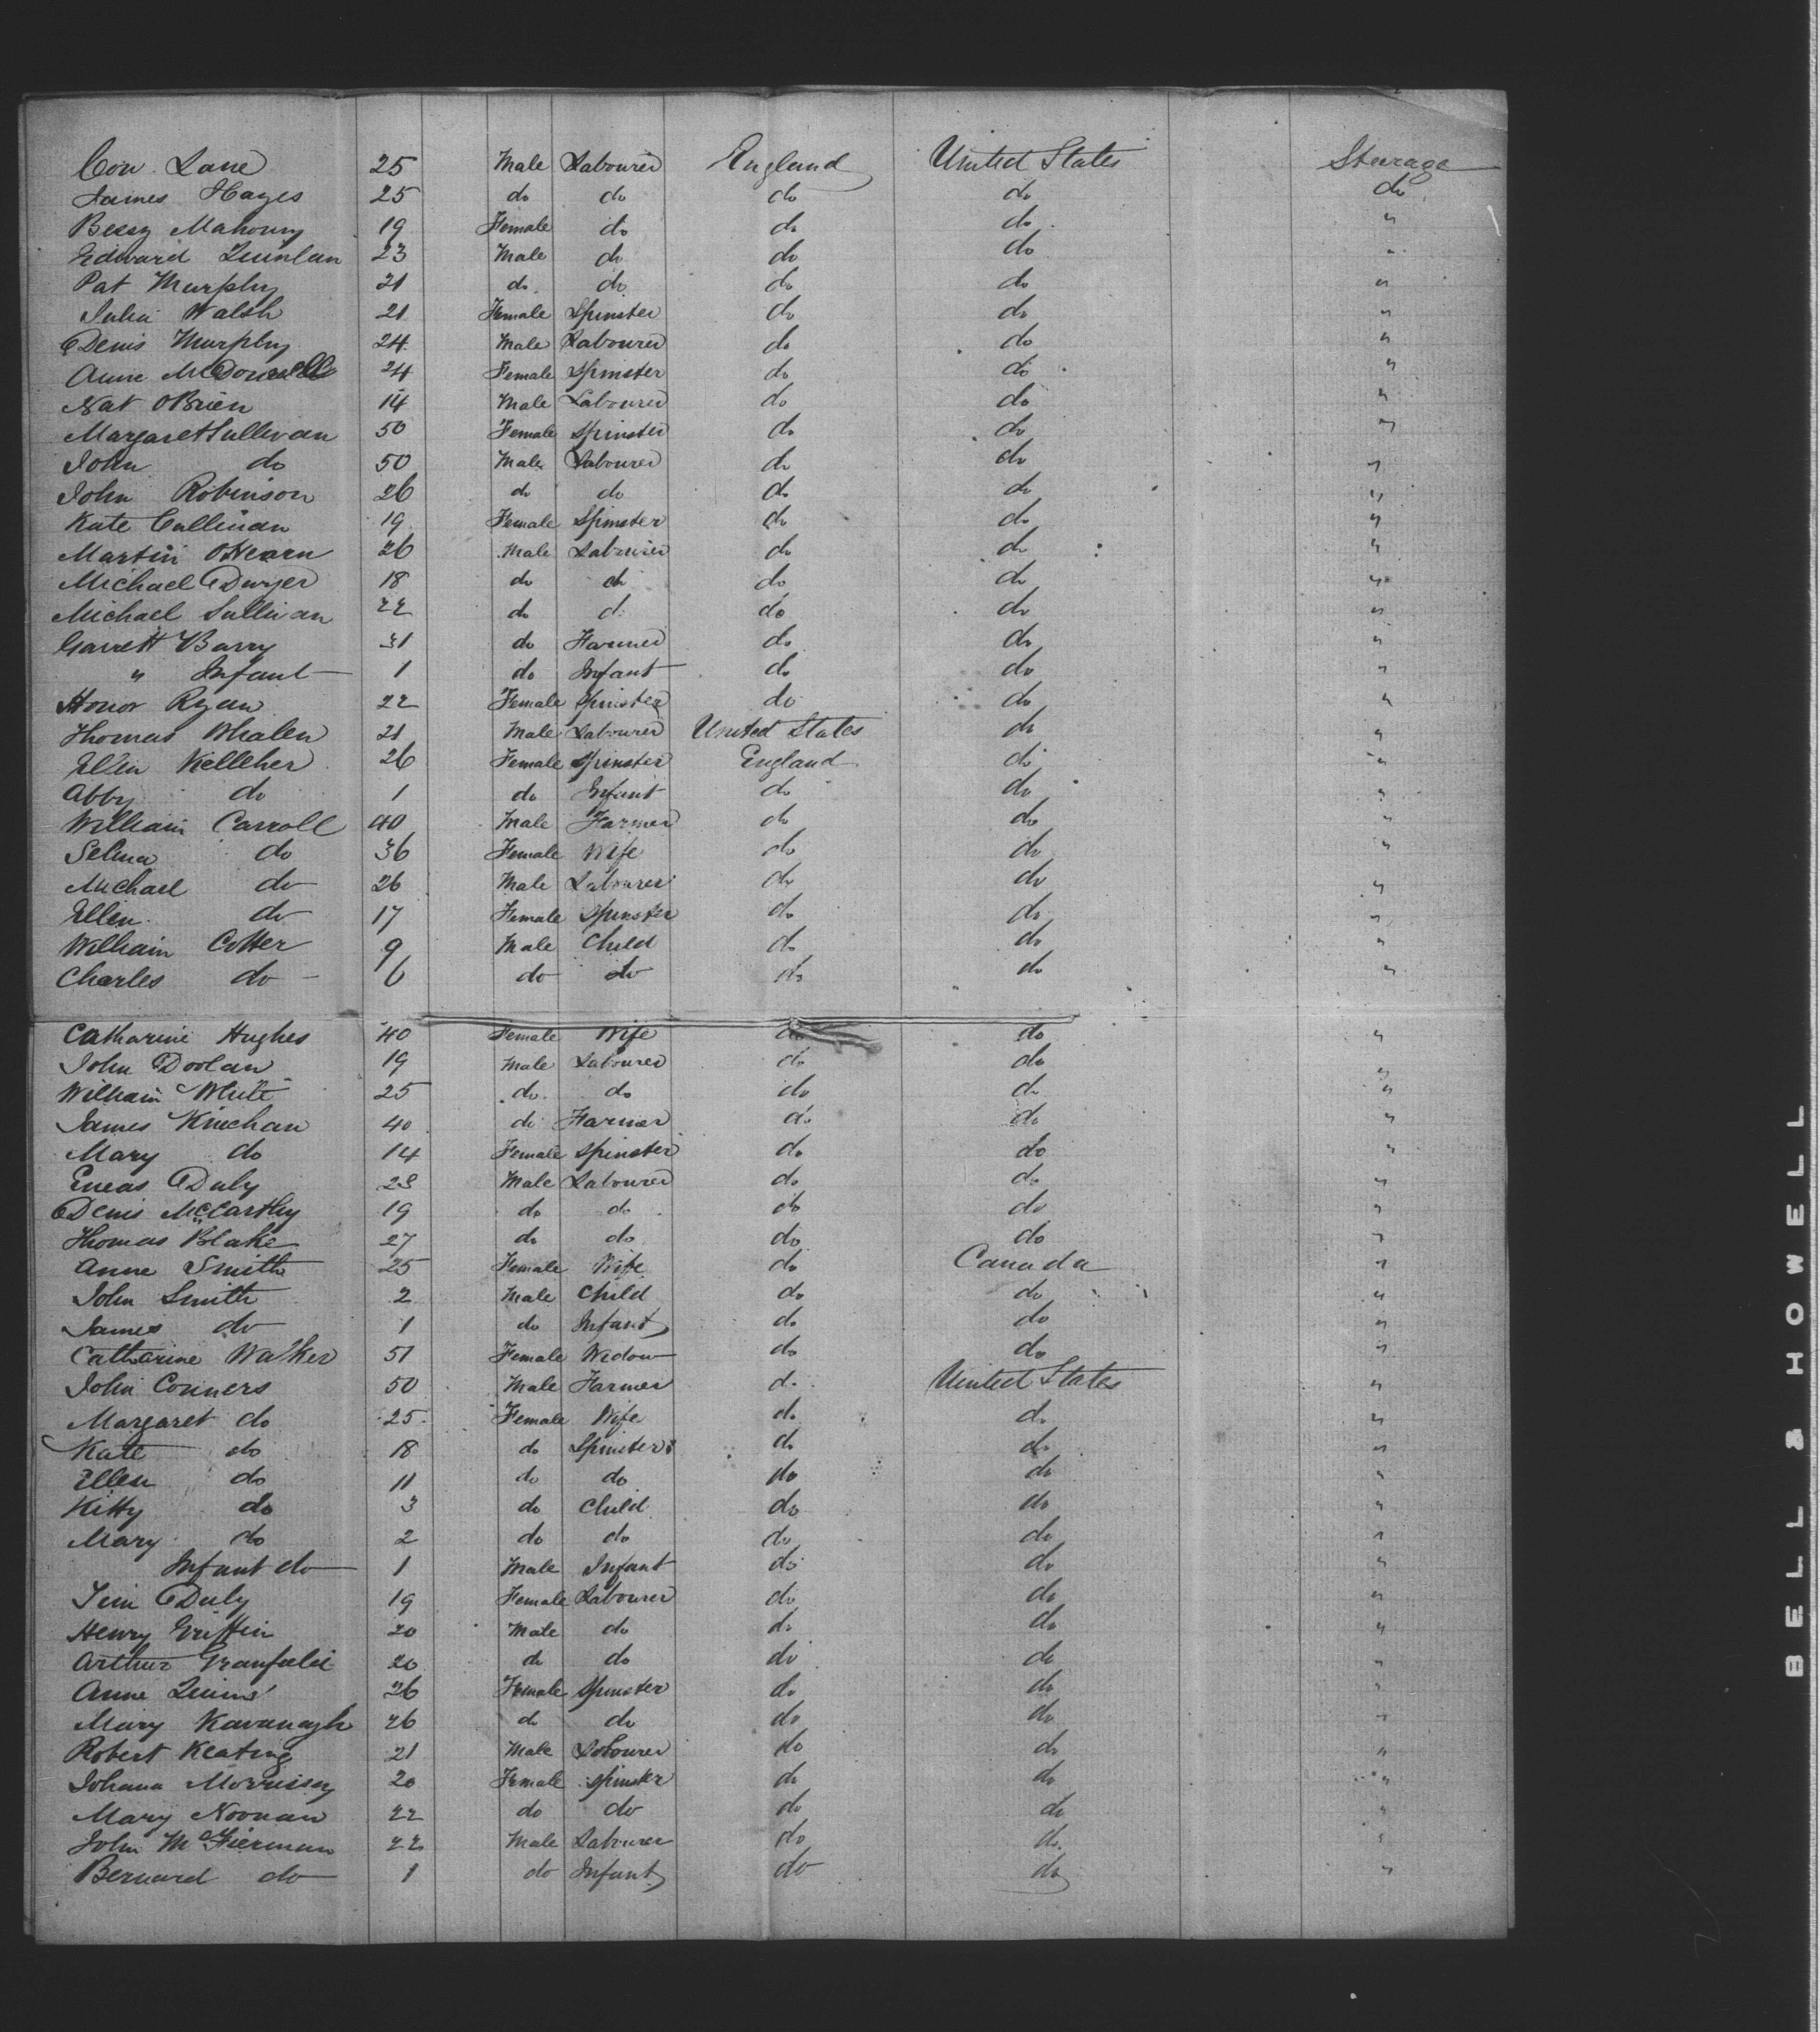 Con Lane 25 Male Labourer England United States Steerage
James Hayes 25 do do do do do
Bessy Mahony 19 Female do do do "
Edward Quinlan 23 Male do do do "
Pat Murphy 21 do do do do "
Julia Walsh 21 Female Spinster do do "
Denis Murphy 24 Male Labourer do do "
Anne McDonnell 24 Female Spinster do do "
Nat OBrien 14 Male Labourer do do "
Margaret Sullivan 50 Female Spinster do do "
John do 50 Male Labourer do do "
John Robinson 26 do do do do "
Kate Cullinan 19 Female Spinster do do "
Martin OHearn 26 Male Labourer do do "
Michael Dwyer 18 do do do do "
Michael Sullivan 22 do do do do "
Garrett Barry 31 do Farmer do do "
" Infant 1 do Infant do do "
Honor Ryan 22 Female Spinster do do "
Thomas Whalen 21 Male Labourer United States do "
Ellen Kelleher 26 Female Spinster England do "
Abby do 1 do Infant do do "
William Carroll 40 Male Farmer do do "
Selina do 36 Female Wife do do "
Michael do 26 Male Labourer do do "
Ellen do 17 Female Spinster do do "
William Cotter 9 Male Child do do "
Charles do 6 do do do do "
Catharine Hughes 40 Female Wife do do "
John Doolan 19 Male Labourer do do "
William White 25 do do do do "
James Kinehan 40 do Farmer do do "
Mary do 14 Female Spinster do do "
Eneas Duly 23 Male Labourer do do "
Denis McCarthy 19 do do do do "
Thomas Blake 27 do do do do "
Anne Smith 25 Female Wife do Canada "
John Smith 2 Male Child do do "
James do 1 do Infant do do "
Catharine Walker 51 Female Widow do do "
John Conners 50 Male Farmer do United States "
Margaret do 25 Female Wife do do "
Kate do 18 do Spinster do do "
Ellen do 11 do do do do "
Kitty do 3 do Child do do "
Mary do 2 do do do do "
Infant do 1 Male Infant do do "
Tim Duly 19 Female Labourer do do "
Henry Griffin 20 Male do do do "
Arthur 20 do do do do "
Anne 26 Female Spinster do do "
Mary Kavanagh 26 do do do do "
Robert Keating 21 Male Labourer do do "
Johana Morrissy 20 Female Spinster do do "
Mary Noonan 22 do do do do "
John McTiernan 22 Male Labourer do do "
Bernard do 1 do Infant do do "
BELL & HOWELL